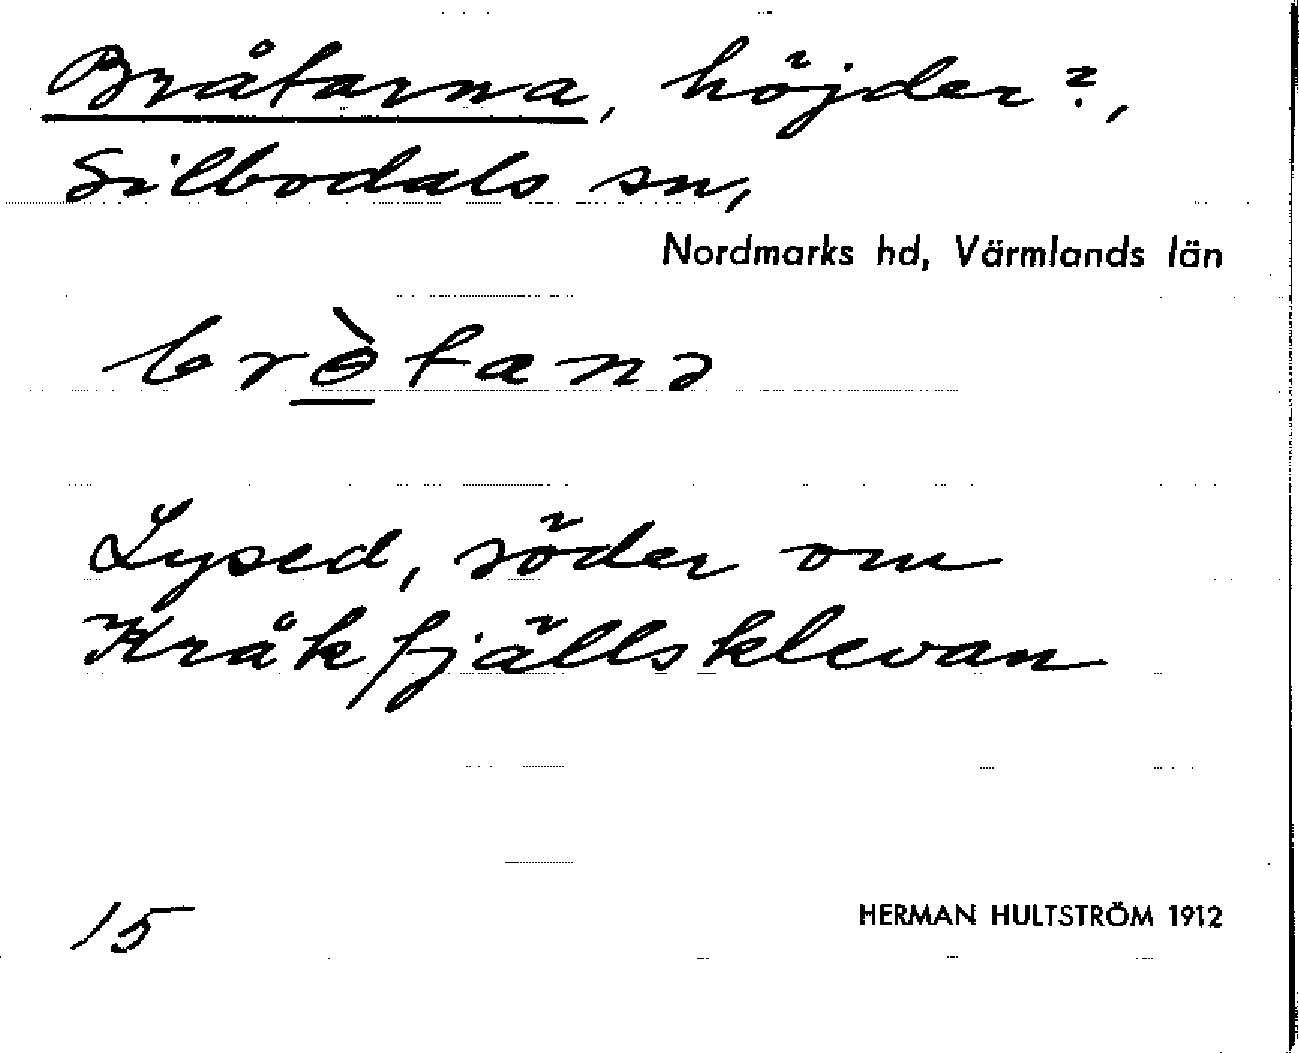 Bråtarna, höjder?,
Silbodals sn,
Nordmarks hd, Värmlands län
brɵ̀tanə
Lysed, söder om
Kråkfjällsklevan
15
HERMAN HULTSTRÖM 1912